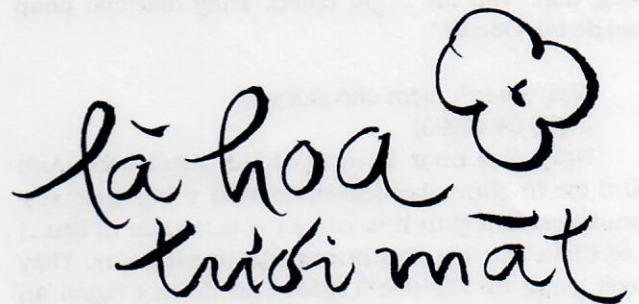 là hoa
tươi mát